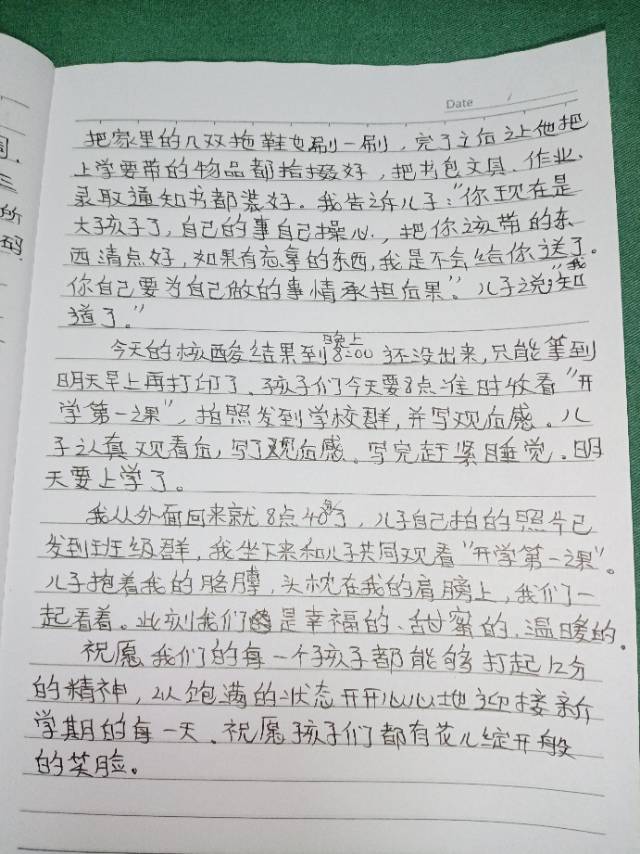 Date
把家里的几双拖鞋也刷一刷，完了之后让他把
上学要带的物品都拾掇好，把书包文具、作业、
录取通知书都装好。我告诉儿子："你现在是
大孩子了，自己的事自己操心，把你该带的东
西清点好，如果有忘拿的东西，我是不会给你送了。
你自己要为自己做的事情承担后果"。儿子说："我知
道了。"
今天的核酸结果到晚上8:00还没出来，只能等到
明天早上再打印了。孩子们今天要8点准时收看"开
学第一课"，拍照发到学校群，并写观后感。儿
子认真观看后，写了观后感。写完赶紧睡觉。明
天要上学了。
我从外面回来就8点40多了，儿子自己拍的照片已
发到班级群，我坐下来和儿子共同观看"开学第一课"。
儿子抱着我的胳膊，头枕在我的肩膀上，我们一
起看着。此刻我们是幸福的、甜蜜的、温暖的。
祝愿我们的每一个孩子都能够打起12分
的精神，以饱满的状态开开心心地迎接新
学期的每一天、祝愿孩子们都有花儿绽开般
的笑脸。
三
所
码